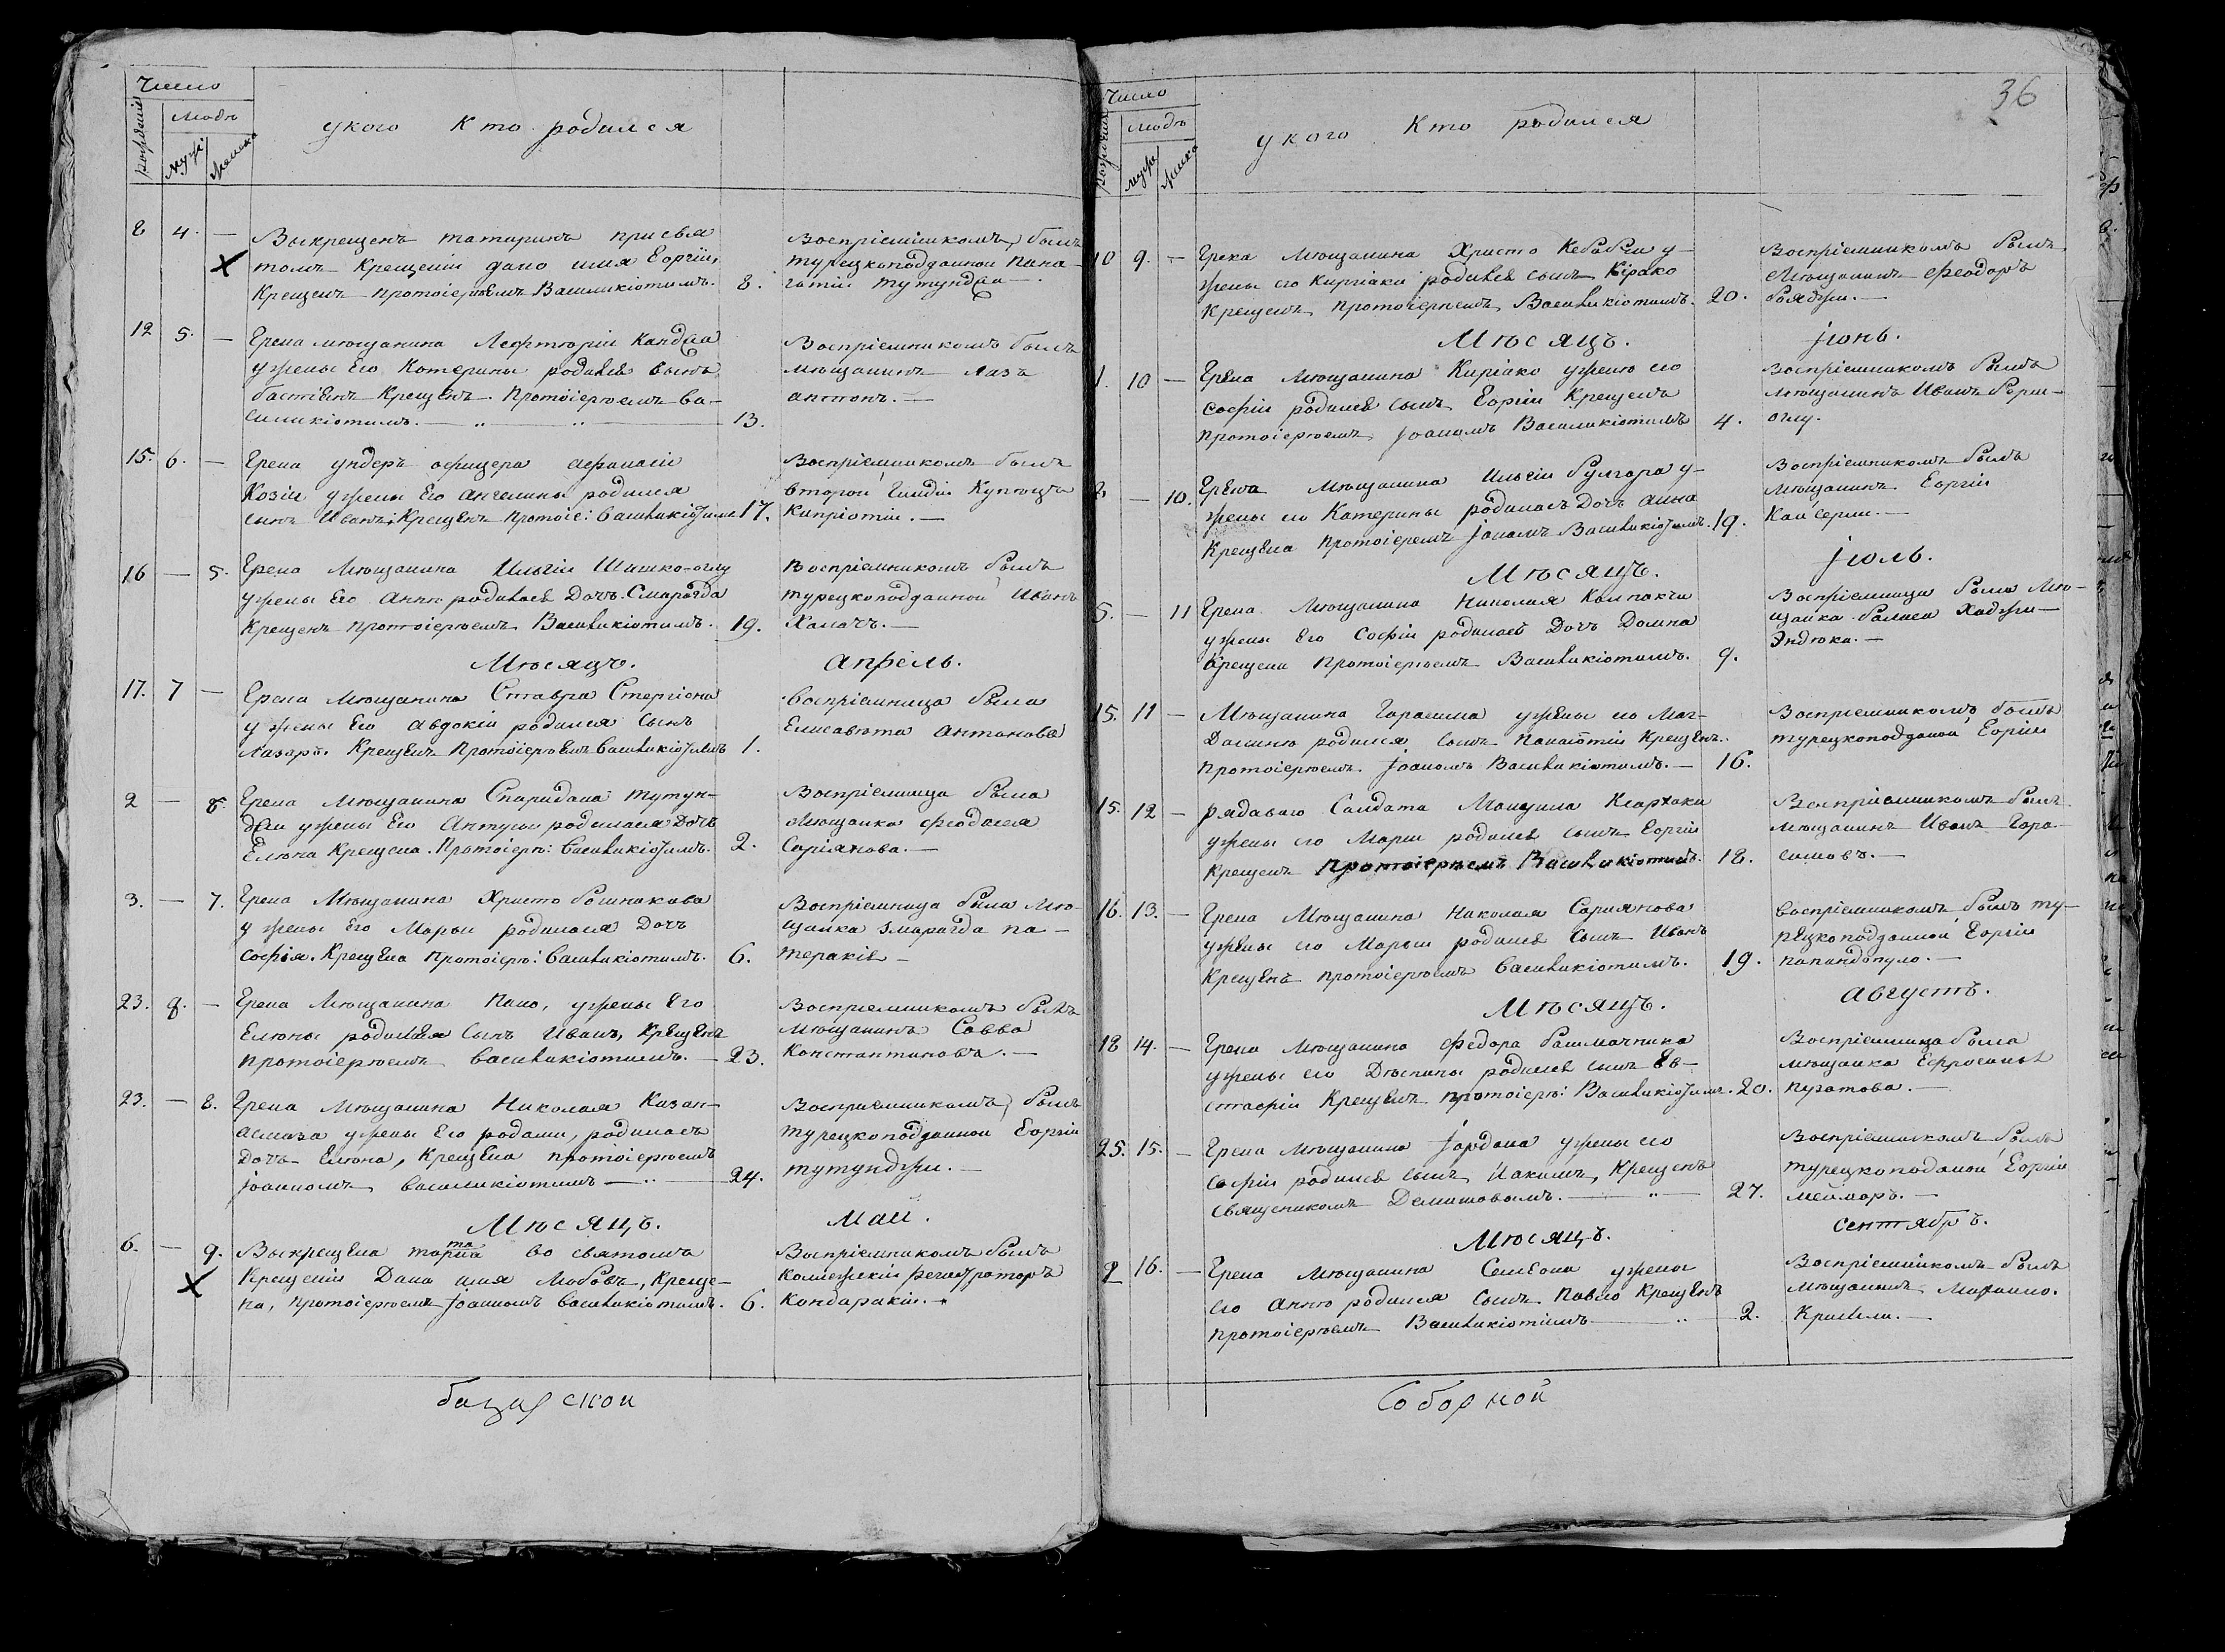 Число
рождения
людъ
муж:
женска
укого Кто родился
8 4. — Выкрещенъ татаринъ присвя
томъ Крещеніи дано имя Еоргіи,
Крещенъ протоіереѣмъ Василикіотимъ. 8.
Воспріемникомъ былъ
турецкоподданной Пана-
гіотіи тутунджи —.
12 5. — Грека мѣщанина Лефтюріи
ужены Его Катерины родився Сынъ
Крещѣнъ. Протоіереемъ Ва-
силикіотимъ. — „ — „ — 13.
Воспріемникомъ былъ
мѣщанинъ лазъ
антонъ. —
15. 6. — Грека ундеръ офицера афанасіи
Козіи ужены Его Ангелины родился
сынъ Иванъ; Крещѣнъ протоіе: Василикіотимъ 17.
Воспріемникомъ былъ
второй Гилдіи Купѣцъ
Кипріотіи. —
16 — 5. Грека Мѣщанина Ильіи Шишко-оглу
ужены Его Анны родилась Дочъ. Смарагда
Крещенъ протоіерѣемъ Василикіотимъ. 19.
Воспріемникомъ былъ
турецкоподданной Иванъ
Халачъ. —
Мѣсяцъ. апрѣль.
17. 7 — Грека Мѣщанина Ставра Стергіона
ужены Его авдокіи родился Сынъ
Лазаръ. Крещѣнъ Протоіерѣемъ Василикіотимъ 1.
воспріемница была
Елисавѣта антонова
2 — 6. Грека Мѣщанина Спиридана тутун-
джи ужены Его Антусы родилася Дочъ
Елѣна Крещена. Протоіерѣ: Василикіотимъ. 2.
Воспріемница была
Мѣщанка феодосия
Саріянова. —
3. — 7. Грека Мѣщанина Христо башнакова
ужены Его Марьи родилася Дочъ
София. Крещена протоіерѣ: Василикіотимъ. 6.
Воспріемница была Мѣ-
щанка змарагда па-
теракіе —
23. 8. — Грека Мѣщанина Пано, ужены Его
Елѣны родился Сынъ Иванъ, Крещѣнъ
протоіерѣемъ Василикіотимъ. — 23.
Воспреемникомъ былъ
мѣщанинъ Савва
Константиновъ. —
23. — 8. Грека Мѣщанина Николая Казан-
алмаза ужены Его родами, родилась
Дочь Елѣна, Крещена протоіерѣемъ
Іоанномъ Василикіотимъ — „ 24.
Восприемникомъ, былъ
турецкоподданной Еоргіи
тутунджи. —
Мѣсяцъ. Маи.
6. — 9. Выкрещена тарка во святомъ
та
Крещеніи Дана имя Любовъ, Креще-
на, протоіерѣемъ Іоанномъ Василикіотимъ. 6.
Воспріемникомъ былъ
Колежскіи регистраторъ
Кондаракіи. —
базарской
36
Число
рождения
людъ
муж
женска
укого Кто родился
10 9. — Грека Мѣщанина Христо Кебабчи у-
жены его Киріаки родився сынъ Кірако
Крещенъ протоіереемъ Василикіотимъ. 20.
Воспріемникомъ былъ
Мѣщанинъ Феодоръ
бояджи. —
Мѣсяцъ. Іюнь.
1. 10 — Грека Мѣщанина Киріако ужены его
Софіи родился сынъ Еоргіи Крещенъ
протоіерѣемъ Іоаномъ Василикіотимъ 4.
Воспріемникомъ былъ
Мѣщанинъ Иванъ
оглу.
— 10. Грека Мѣщанина Ильіи Булгара у-
жены его Катерины родилась Дочъ анна
Крещена протоіеремъ Іоаномъ Василикіотимъ. 19.
Воспріемникомъ былъ
Мѣщанинъ Еоргіи
Кайсерли. —
Мѣсяцъ. Іюль.
5. — 11 Грека Мѣщанина Николая Колпакчи
ужены Его Софіи родилась Дочъ Домна
Крещена протоіерѣемъ Василикіотимъ. 9.
Воспріемница была Мѣ-
щанка баласа Хаджи —
Эндека. —
15. 11 — Мѣщанина Гарасима ужены его Маг-
далины родился сынъ Панаіотіи Крещенъ.
протоіерѣемъ Іоаномъ Василикіотимъ. — 16.
Воспріемникомъ былъ
турецкоподданой Еоргіи
15. 12 — рядаваго Салдата Мануила
ужены его Марии родился сынъ Еоргіи
Крещенъ Протоіерѣемъ Василикіотимъ. 18.
Воспріемникомъ былъ
мѣщанинъ Иванъ Гара-
симовъ. —
16. 13. — Грека Мѣщанина Николая Сариянова
ужены его Марьи родився Сынъ Иванъ
Крещенъ протоіереемъ Василикіотимъ. 19.
воспріемникомъ былъ ту-
рецкоподданой Еоргіи
папандопуло. —
Мѣсяцъ. августъ.
18 14. — Грека Мѣщанина Федора башмачника
ужены его Деспины родился сынъ Ев-
стафіи Крещенъ протоіерѣ: Василикіотимъ. 20.
Воспріемница была
мѣщанка Ефросинья
Муратова. —
25. 15. — Грека мѣщанина Іордана ужены его
Софіи родився сынъ Иакимъ, Крещенъ
священикомъ Демишовымъ. — „ — 27.
Воспріемникомъ былъ
турецкоподаной Еоргіи
меймаръ. —
Мѣсяцъ. сентябръ.
2 16. — Грека Мѣщанина Семѣона ужены
его Анны родился Сынъ Павло Крещенъ
протоіерѣемъ Василикіотимъ — „ 2.
Воспріемникомъ былъ
мѣщанинъ Михаило.
Кримли. —
Соборной